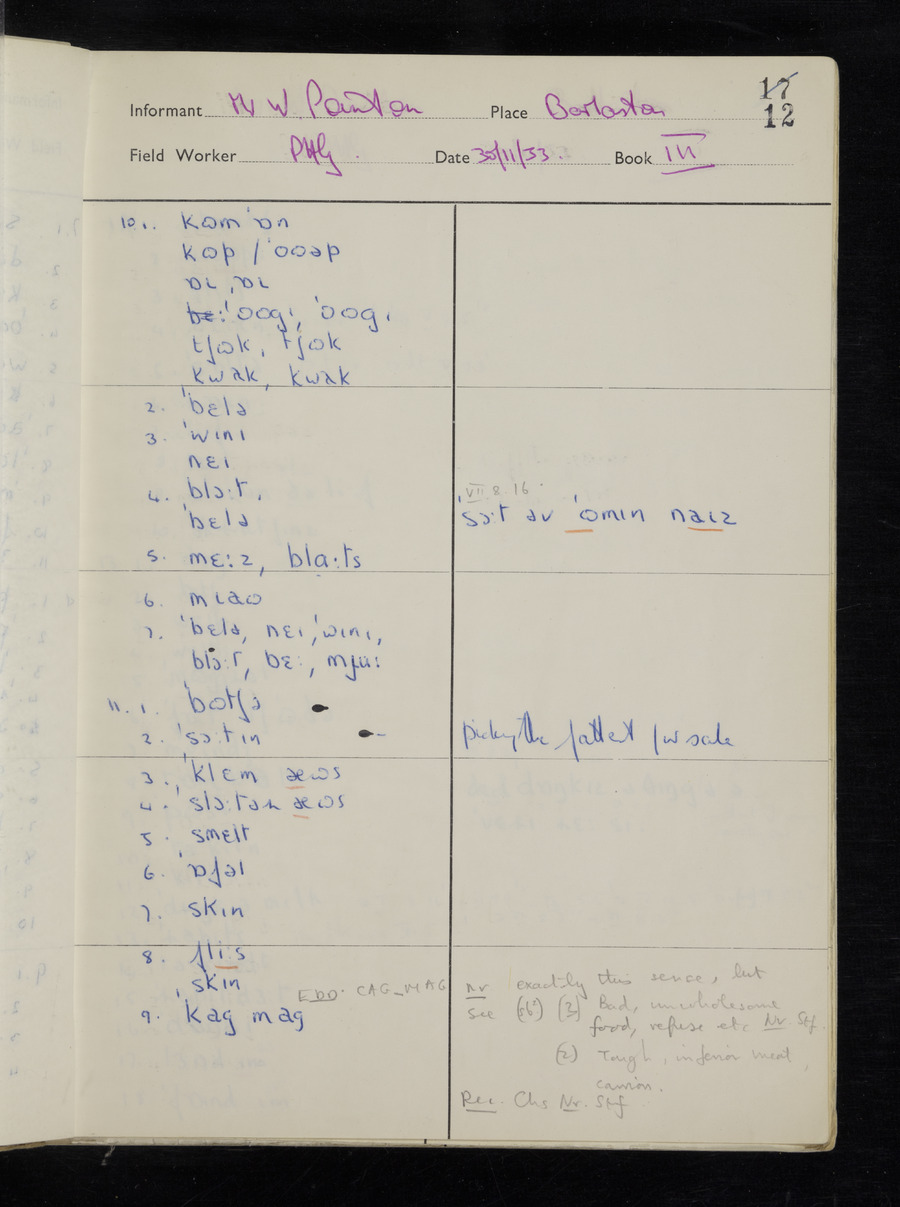 17
12
Informant Mr W Painton Place Barlaston
Field Worker PHG. Date 30/11/53. Book III
10. 1. kɒm ˈɒn
kɒp / ˈɒɒəp
be: ˈɒɒgɪ, ˈɒɒgɪ
tʃɒk, tʃɒk
kwak, kwak
2. ˈbɛlə
3. ˈwɪnɪ
nɛɪ
VII 8.16.
4. blɔ:t,
ˈbɛlə
ˈsɔ:t əv ˈɒmɪn naɪz
5. mɛ:z, bla:ts
6. mɪaɷ
7. ˈbɛlə, nɛɪ, ˈwɪnɪ,
blɔ:t, bɛ:, mju:
11. 1. ˈbɒtʃə
2. ˈsɔ:tɪn
picking the fattest for sale
3. ˈklɛm æɷs
4. ˈslɔ:tər æɷs
5. smɛlt
6. ˈɒfəl
7. skɪn
8. fli:s
skɪn
EDD. CAG-MAG
9. ˈkag mag
nr exactly this sense, but
see (sb¹) (3) Bad, unwholesome
food, refuse etc Nr. Stf.
(2) Tough, inferior meat,
carrion.
Rec. Chs Nr. Stf